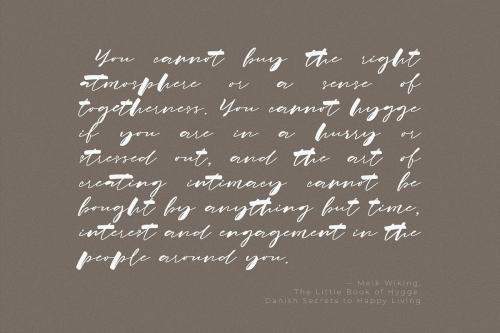 You cannot buy the right
atmosphere or a sense of
togetherness. You cannot hygge
if you are in a hurry or
stressed out, and the art of
creating intimacy cannot be
bought by anything but time,
interest and engagement in the
people around you.
— Meik Wiking,
The Little Book of Hygge:
Danish Secrets to Happy Living